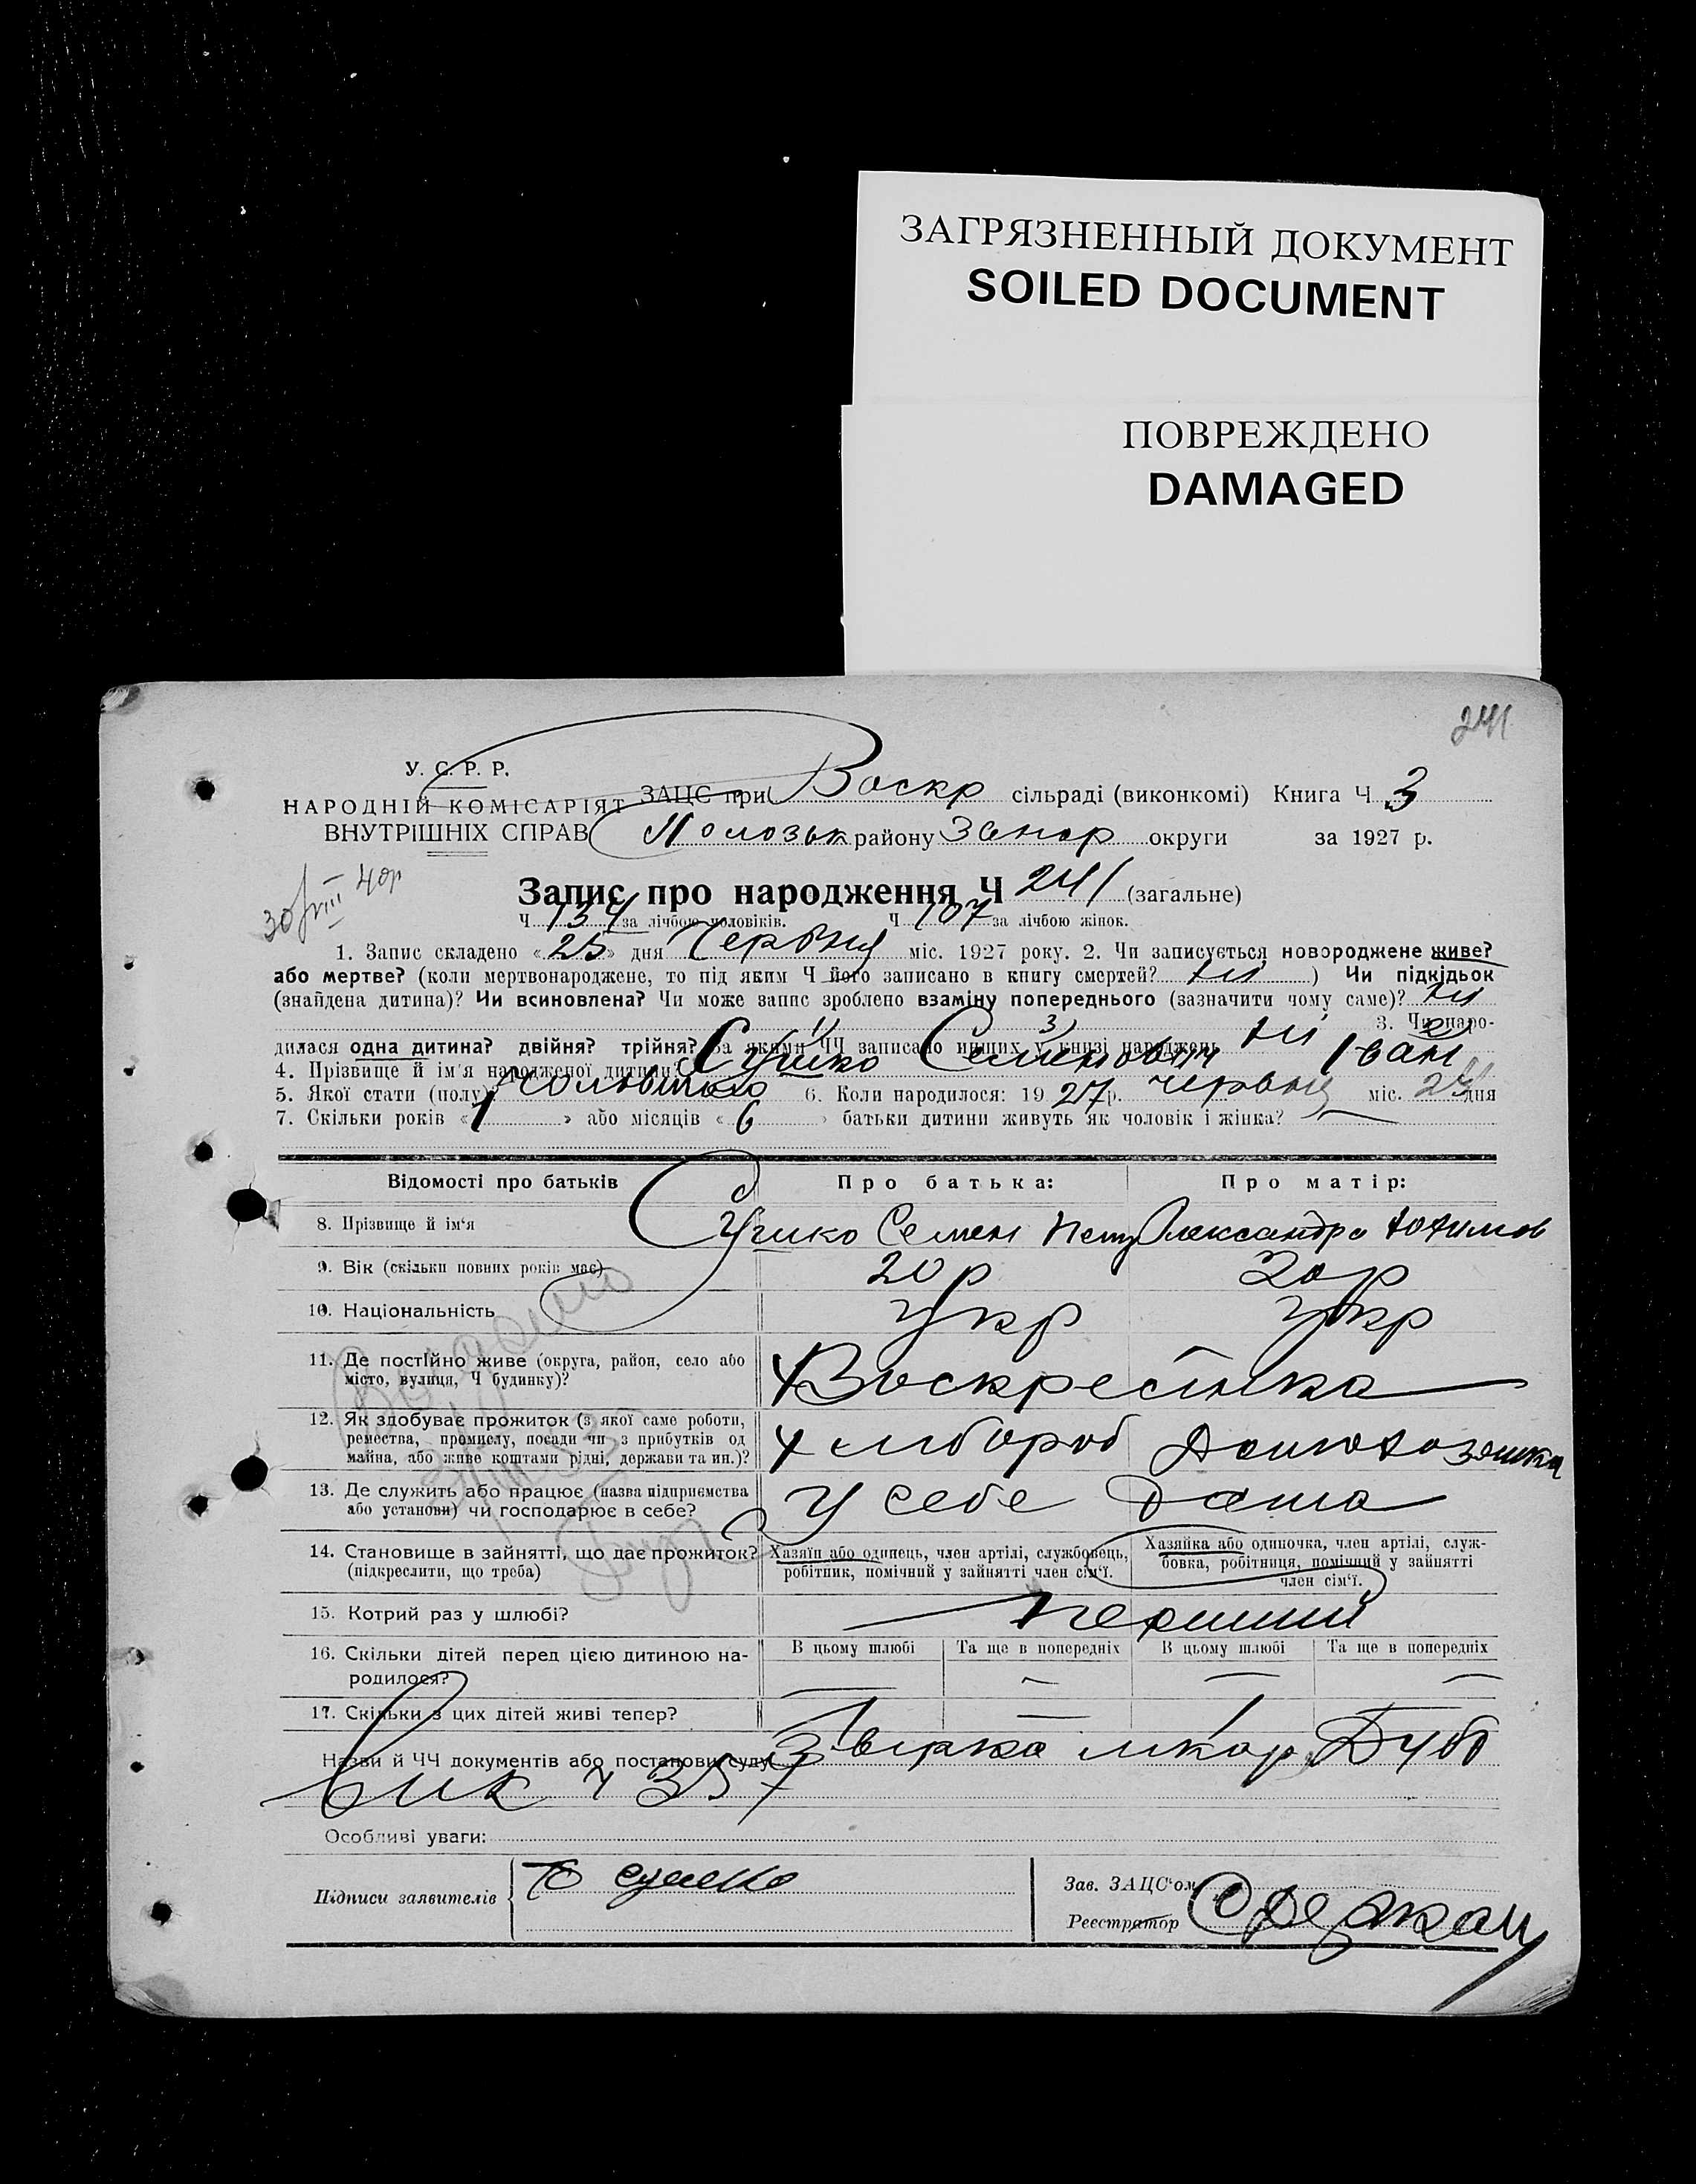 ЗАГРЯЗНЕННЫЙ ДОКУМЕНТ
SOILED DOCUMENT
ПОВРЕЖДЕНО
DAMAGED
241
У. С. Р. Р.
НАРОДНІЙ КОМІСАРІЯТ
ВНУТРІШНІХ СПРАВ
ЗАЦС при Воскр сільраді (виконкомі) Книга Ч 3
району Запор округи за 1927 р.
Запис про народження Ч 241 (загальне)
Ч 134 за лічбою чоловіків. Ч 107 за лічбою жінок.
1. Запис складено «25» дня Червня міс. 1927 року. 2. Чи записується новороджене живе?
або мертве? (коли мертвонароджене, то під яким Ч його записано в книгу смертей? ні ) Чи підкідьок
(знайдена дитина)? Чи всиновлена? Чи може запис зроблено взаміну попереднього (зазначити чому саме)? ні
3. Чи наро-
дилася одна дитина? двійня? трійня? За якими ЧЧ записано инших у книзі народжень ні
4. Прізвище й ім'я народженої дитини? Сушко Семенович Іван
5. Якої стати (полу)? 6. Коли народилося: 1927 р. червня міс. 24 дня
7. Скільки років «1» або місяців «6» батьки дитини живуть як чоловік і жінка?
Відомості про батьків Про батька: Про матір:
8. Прізвище й ім'я Сушко Семен Петр Олександра Юхимов
9. Вік (скільки повних років має) 20 р 20 р
10. Національність Укр Укр
11. Де постійно живе (округа, район, село або
місто, вулиця, Ч будинку)?
Воскресінка
12. Як здобуває прожиток (з якої саме роботи,
ремества, промислу, посади чи з прибутків од
майна, або живе коштами рідні, держави та ин.)?
хлібороб
13. Де служить або працює (назва підприємства
або установи) чи господарює в себе?
У себе дома
14. Становище в зайнятті, що дає прожиток?
(підкреслити, що треба)
Хазяїн або одинець, член артілі, службовець,
робітник, помічний у зайнятті член сім'ї.
Хазяйка або одиночка, член артілі, служ-
бовка, робітниця, помічний у зайнятті
член сім'ї.
15. Котрий раз у шлюбі? Перший
16. Скільки дітей перед цією дитиною на-
родилося?
В цьому шлюбі Та ще в попередніх В цьому шлюбі Та ще в попередніх
17. Скільки з цих дітей живі тепер?
Назви й ЧЧ документів або постанови суду
Ч 357
Особливі уваги:
Підписи заявителів Сушко
Зав. ЗАЦС'ом
Реєстратор